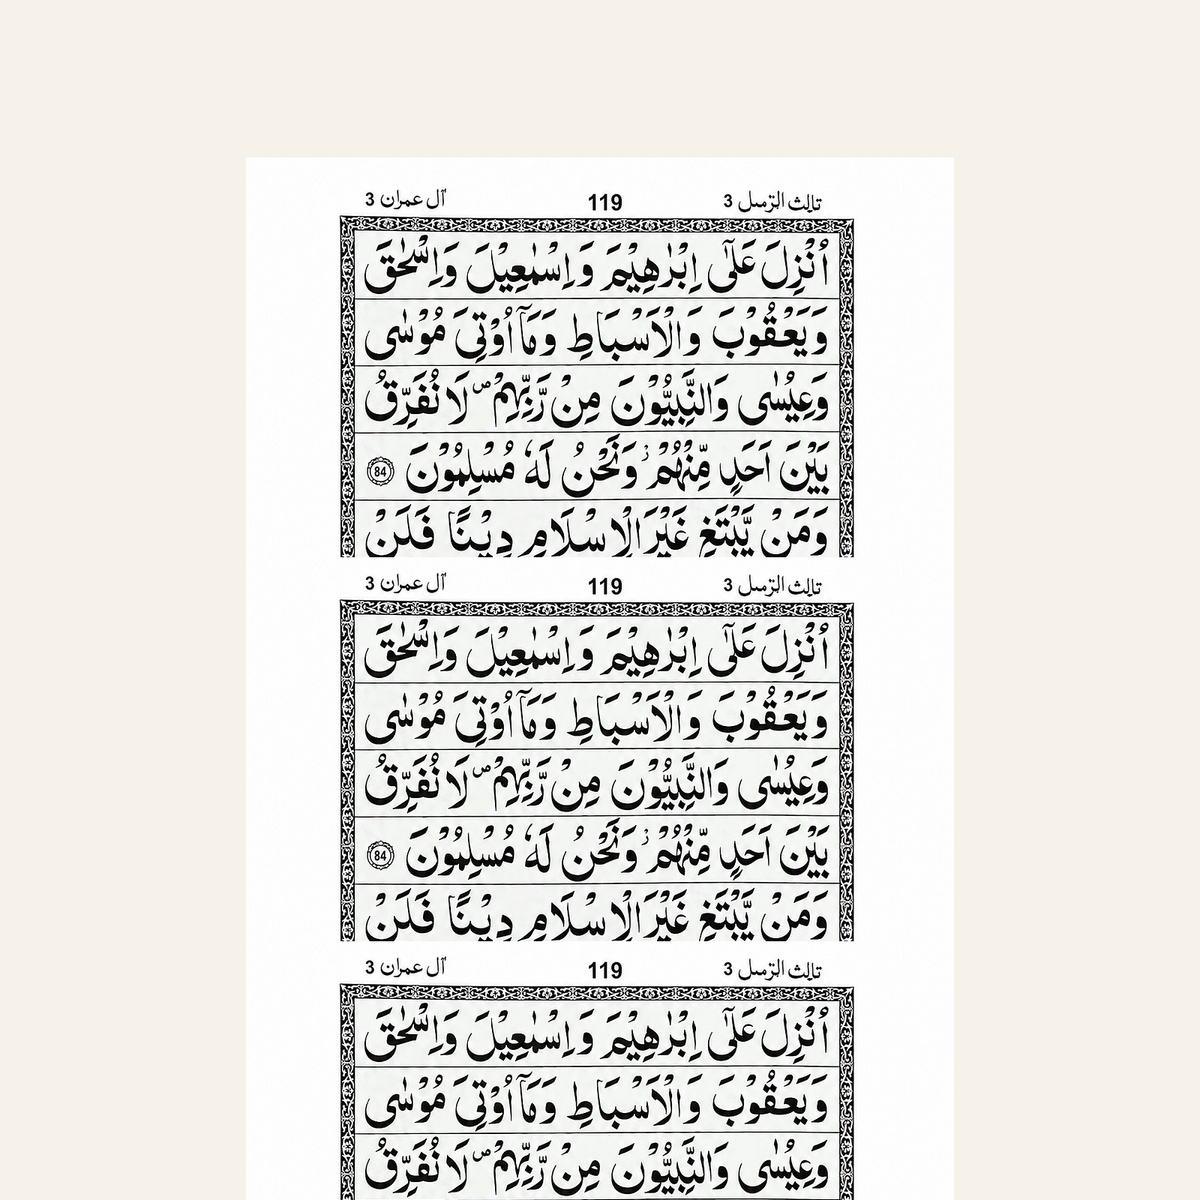 تالث الرّسل 3 119 آل عمران 3
اُنْزِلَ عَلٰٓى اِبْرٰهِيْمَ وَاِسْمٰعِيْلَ وَاِسْحٰقَ
وَيَعْقُوْبَ وَالْاَسْبَاطِ وَمَآ اُوْتِيَ مُوْسٰى
وَعِيْسٰى وَالنَّبِيُّوْنَ مِنْ رَّبِّهِمْ ۖ لَا نُفَرِّقُ
بَيْنَ اَحَدٍ مِّنْهُمْ ۡ وَنَحْنُ لَهٗ مُسْلِمُوْنَ 84
وَمَنْ يَّبْتَغِ غَيْرَ الْاِسْلَامِ دِيْنًا فَلَنْ
تالث الرّسل 3 119 آل عمران 3
اُنْزِلَ عَلٰٓى اِبْرٰهِيْمَ وَاِسْمٰعِيْلَ وَاِسْحٰقَ
وَيَعْقُوْبَ وَالْاَسْبَاطِ وَمَآ اُوْتِيَ مُوْسٰى
وَعِيْسٰى وَالنَّبِيُّوْنَ مِنْ رَّبِّهِمْ ۖ لَا نُفَرِّقُ
بَيْنَ اَحَدٍ مِّنْهُمْ ۡ وَنَحْنُ لَهٗ مُسْلِمُوْنَ 84
وَمَنْ يَّبْتَغِ غَيْرَ الْاِسْلَامِ دِيْنًا فَلَنْ
تالث الرّسل 3 119 آل عمران 3
اُنْزِلَ عَلٰٓى اِبْرٰهِيْمَ وَاِسْمٰعِيْلَ وَاِسْحٰقَ
وَيَعْقُوْبَ وَالْاَسْبَاطِ وَمَآ اُوْتِيَ مُوْسٰى
وَعِيْسٰى وَالنَّبِيُّوْنَ مِنْ رَّبِّهِمْ ۖ لَا نُفَرِّقُ